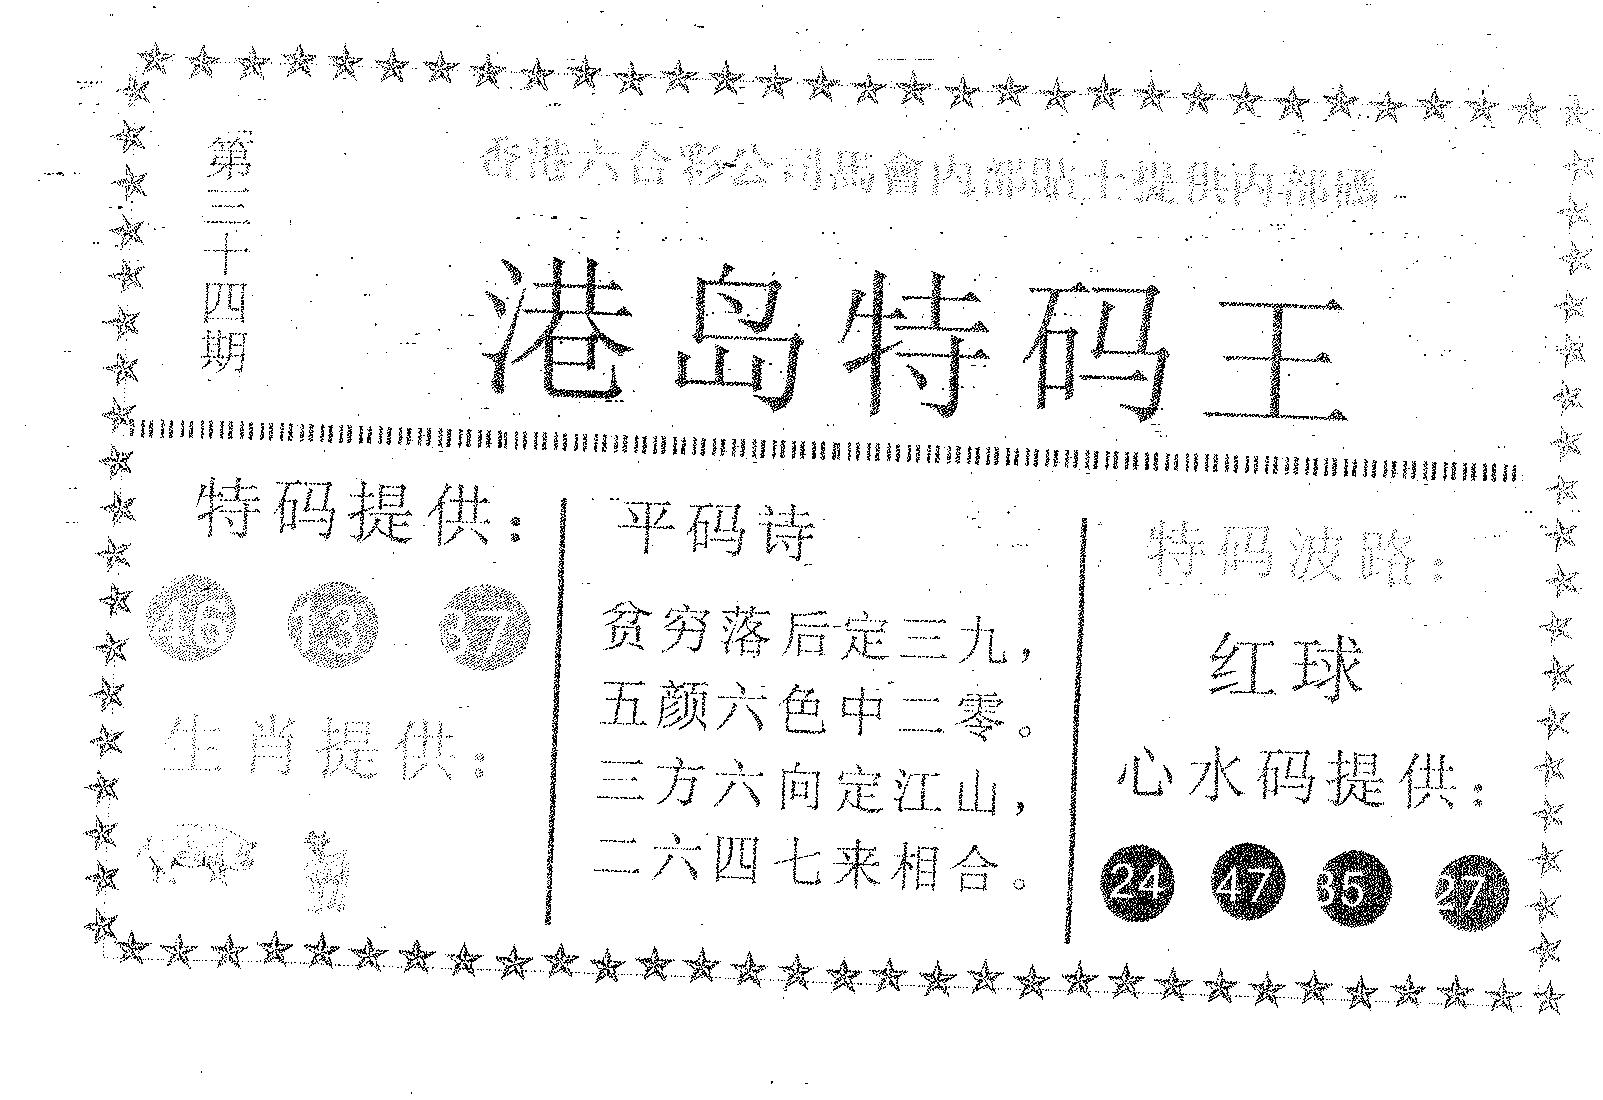 第三十四期
香港六合彩公司馬會内部貼士提供内部
港岛特码王
特码提供：
46 13 37
生肖提供：
平码诗
贫穷落后定三九，
五颜六色中二零。
三方六向定江山，
二六四七来相合。
特码波路：
红球
心水码提供：
24 47 35 27